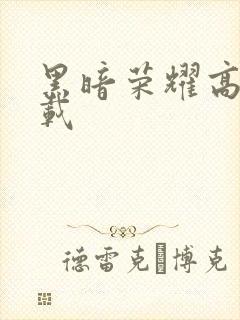 黑暗荣耀高
載
德雷克博克